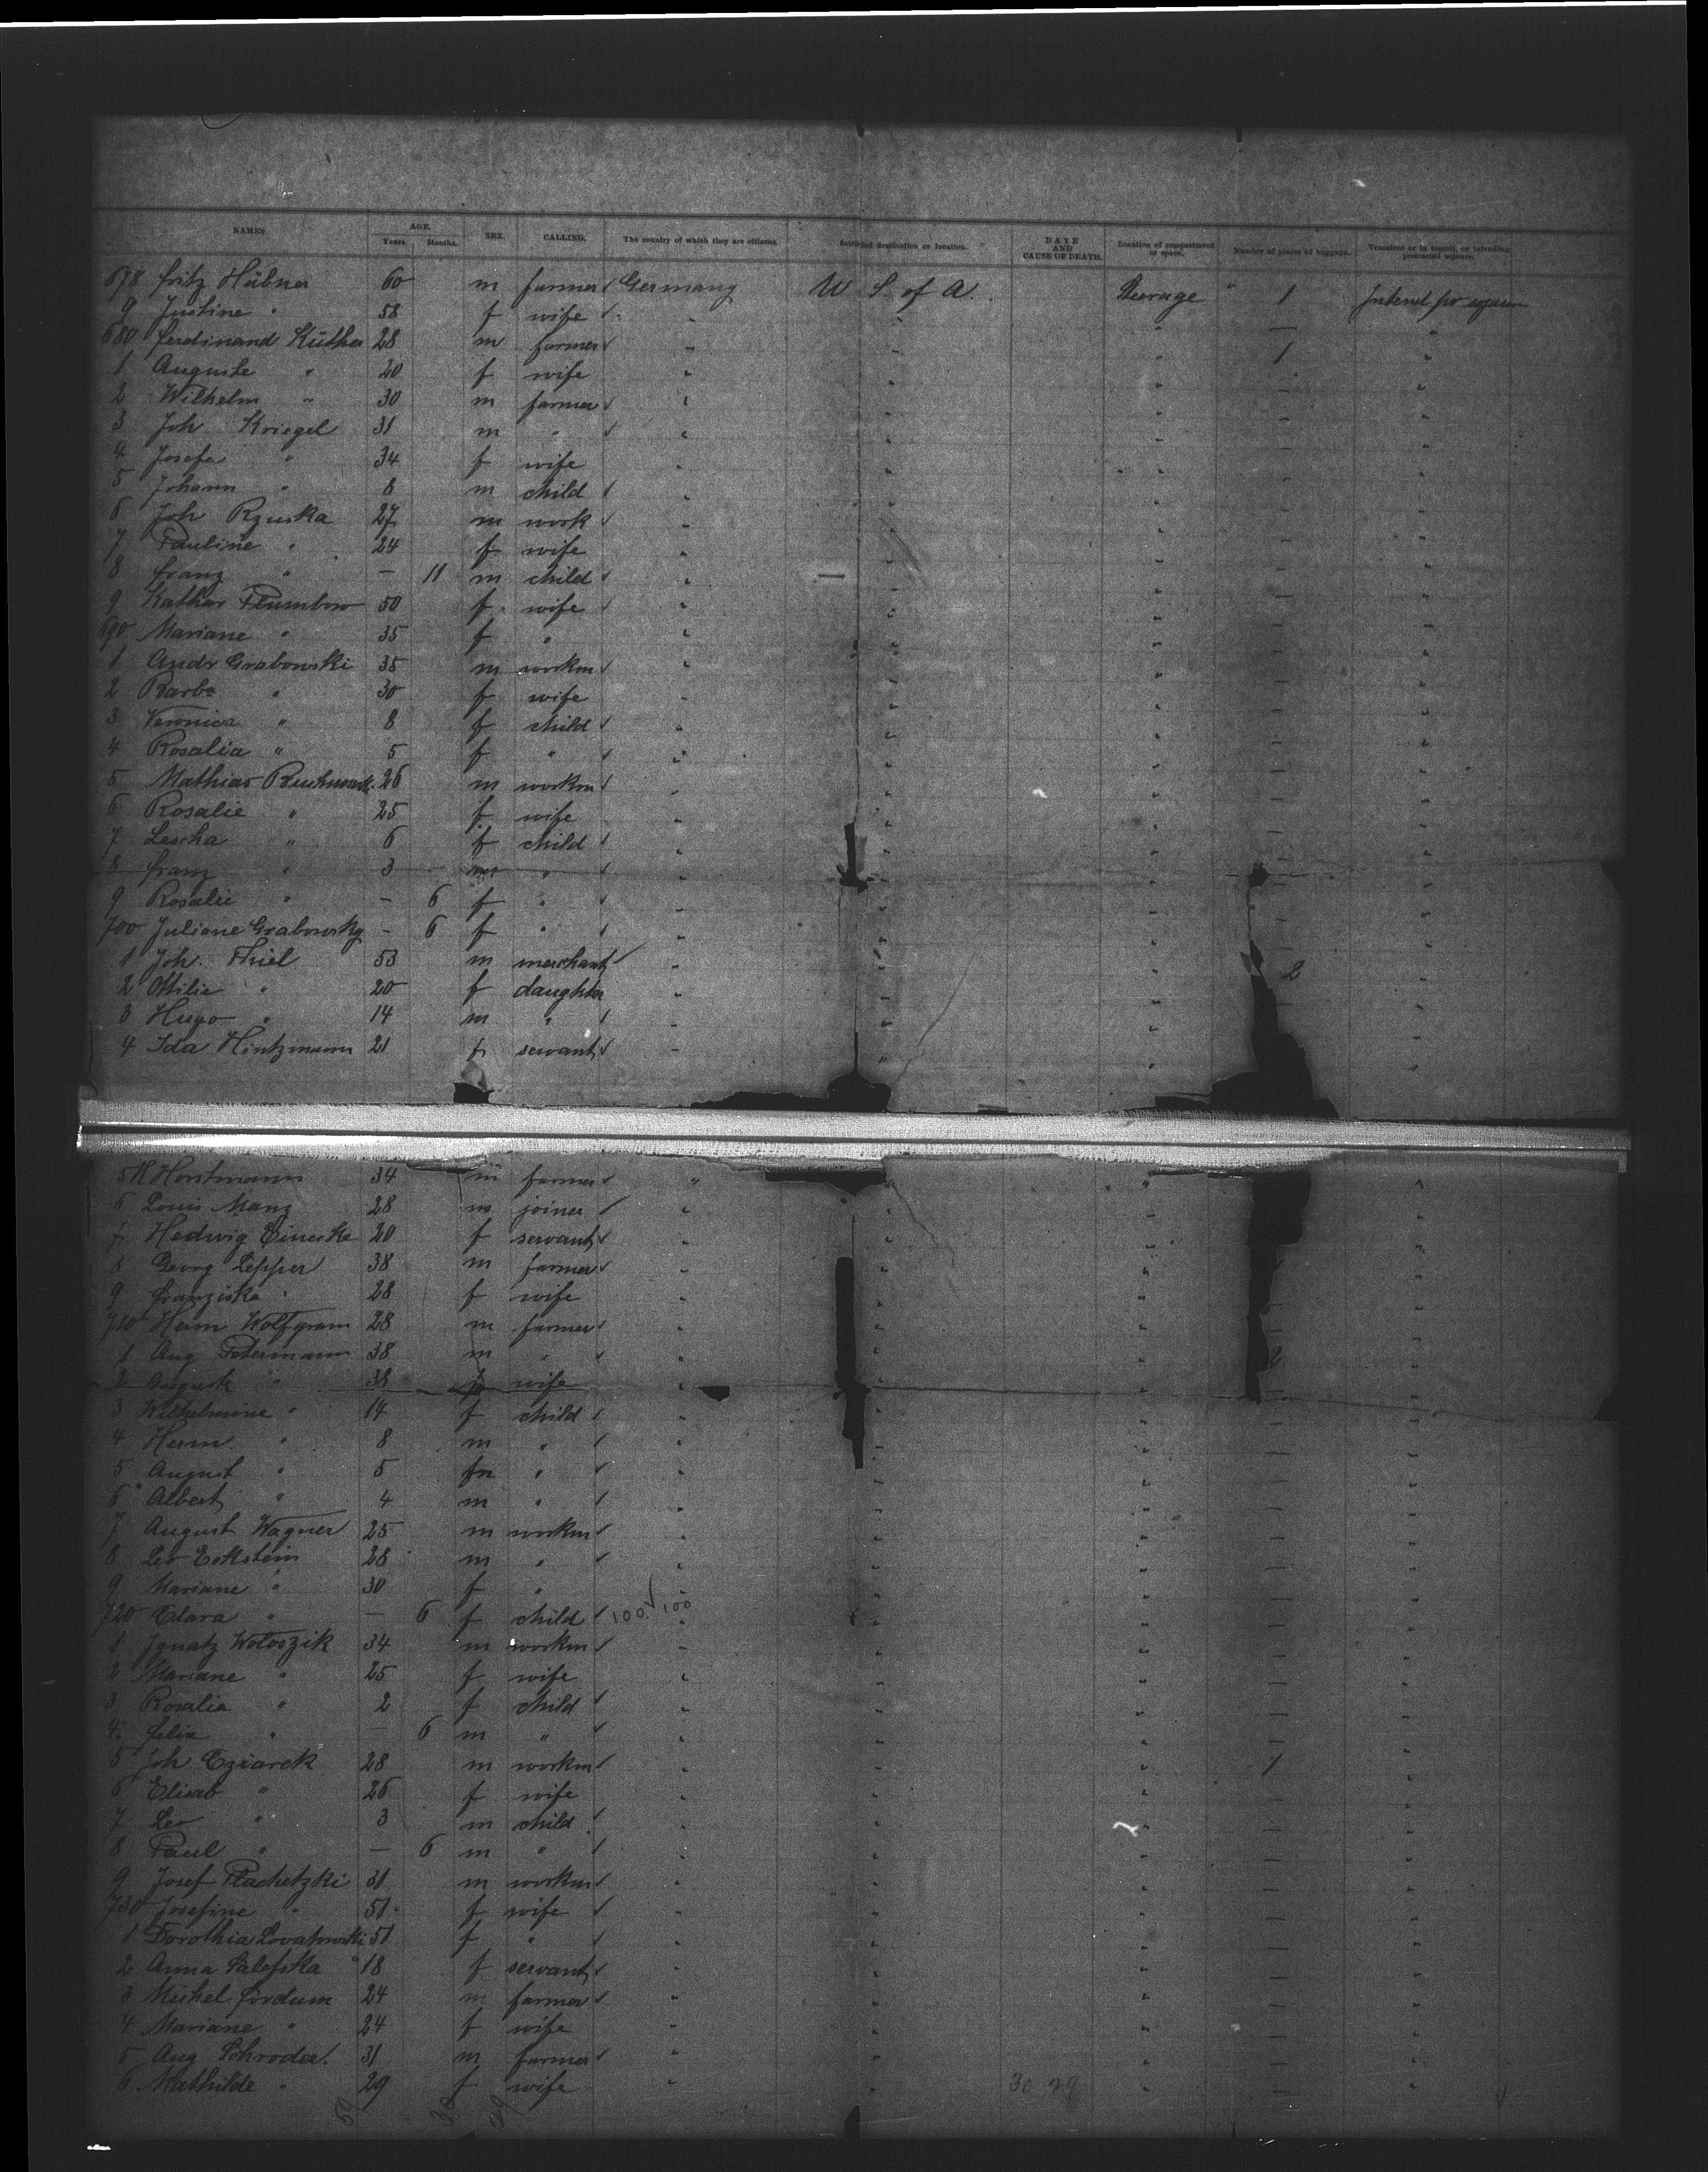 NAMES AGE. SEX. CALLING. The country of which they are citizens. Intended destination or location. DATE AND CAUSE OF DEATH. Location of compartment or space. Number of pieces of baggage. Transient or in transit, or intending protracted sojourn.
Years. Months.
678 Fritz Hübner 60 m farmer Germany U S. of A. Steerage 1 Intend pr sojourn
9 Justine " 58 f wife "
680 Ferdinand Küther 28 m farmer " 1
1 Auguste " 20 f wife "
2 Wilhelm " 30 m farmer "
3 Joh Kriegel 31 m " "
4 Josefa " 34 f wife "
5 Johann " 8 m child "
6 Joh Rzuska 27 m work "
7 Pauline " 24 f wife "
8 Franz " — 11 m child "
9 Kathar 50 f wife "
690 Mariane " 35 f " "
1 Andr Grabowski 35 m workm "
2 Barba " 30 f wife "
3 Veronica " 8 f child "
4 Rosalia " 5 f " "
5 Mathias 26 m workm "
6 Rosalie " 25 f wife "
7 " 6 f child "
8 Franz " 3 m " "
9 Rosalie " — 6 f " "
700 Juliane Grabowsky — 6 f " "
1 Joh. Thiel 53 m merchant " 2
2 Ottilie " 20 f daughter "
3 Hugo " 14 m " "
4 Ida Hintzmann 21 f servant "
5 H Horstmann 34 m farmer "
6 Louis Manz 28 m joiner "
7 Hedwig 20 f servant "
8 Georg Lepper 38 m farmer "
9 Franziska " 28 f wife "
710 Herm Wolfgram 28 m farmer "
1 Aug Petermann 38 m " " 2
2 August " 38 f wife "
3 Wilhelmine " 14 f child "
4 Herm. " 8 m " "
5 August " 5 m " "
6 Albert " 4 m " "
7 August Wagner 25 m workm "
8 Leo Eckstein 28 m " "
9 Mariane " 30 f " "
720 Clara " — 6 f child 100 100
1 Ignatz Woloszik 34 m workm "
2 Mariane " 25 f wife "
3 Rosalia " 2 f child "
4 Felix " — 6 m " "
5 Joh Cziarek 28 m workm " 1
6 Elisab " 26 f wife "
7 Leo " 3 m child "
8 Paul " — 6 m " "
9 Josef Plachetzki 31 m workm "
730 Josefine " 51 f wife "
1 Dorothia 51 f " "
2 Anna 18 f servant "
3 Michel Fordum 24 m farmer "
4 Mariane " 24 f wife "
5 Aug Schroder. 31 m farmer "
6 Mathilde " 29 f wife " 30 29